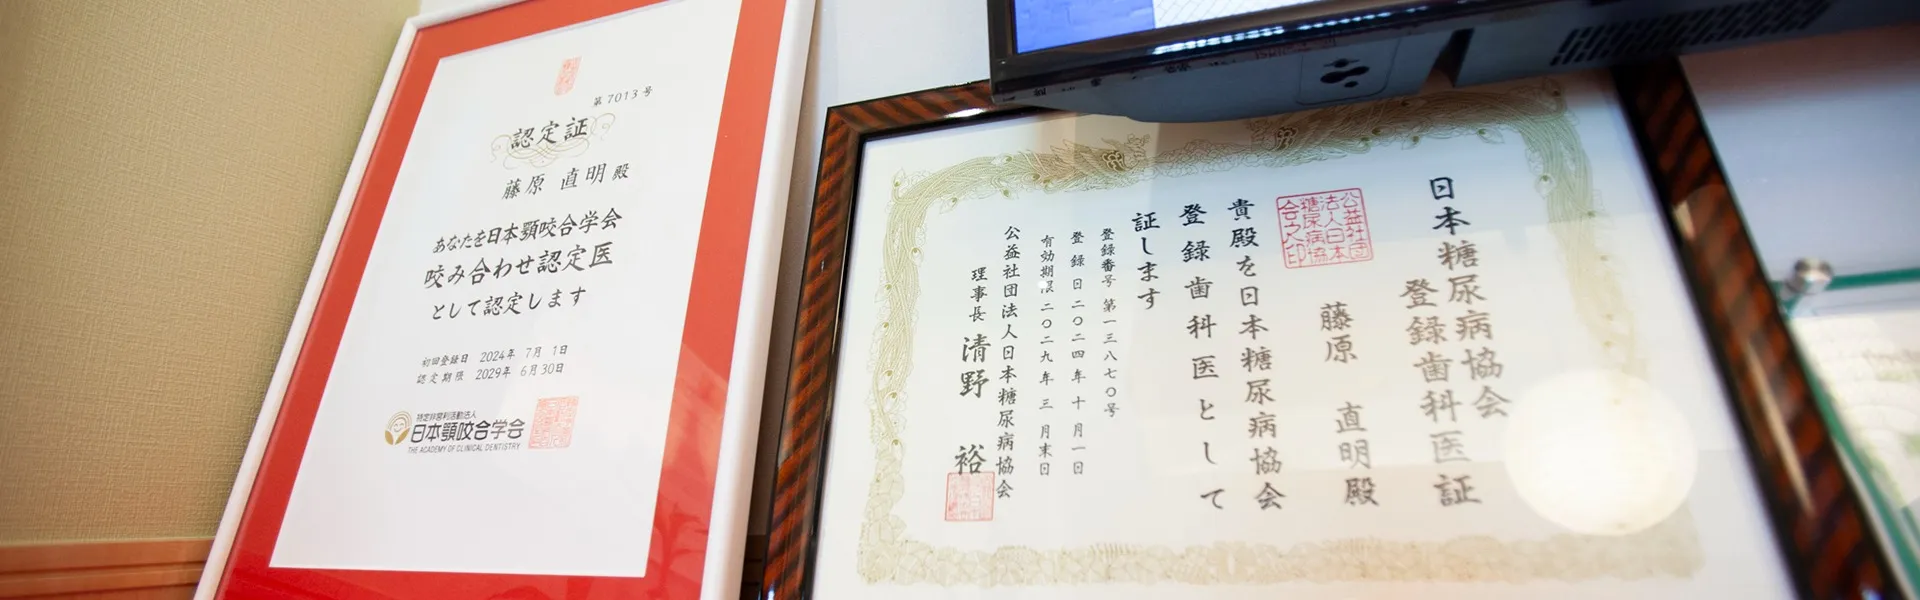 第7013号
認定証
藤原 直明 殿
あなたを日本顎咬合学会
咬み合わせ認定医
として認定します
初回登録日 2024年 7月 1日
認定期限 2029年 6月30日
特定非営利活動法人
日本顎咬合学会
THE ACADEMY OF CLINICAL DENTISTRY
日本糖尿病協会
登録歯科医証
藤原 直明 殿
公益社団
法人日本
糖尿病協
会之印
貴殿を日本糖尿病協会
登録歯科医として
証します
登録番号 第一三八七〇号
登録日 二〇二四年十月一日
有効期限 二〇二九年三月末日
公益社団法人日本糖尿病協会
理事長 清野 裕